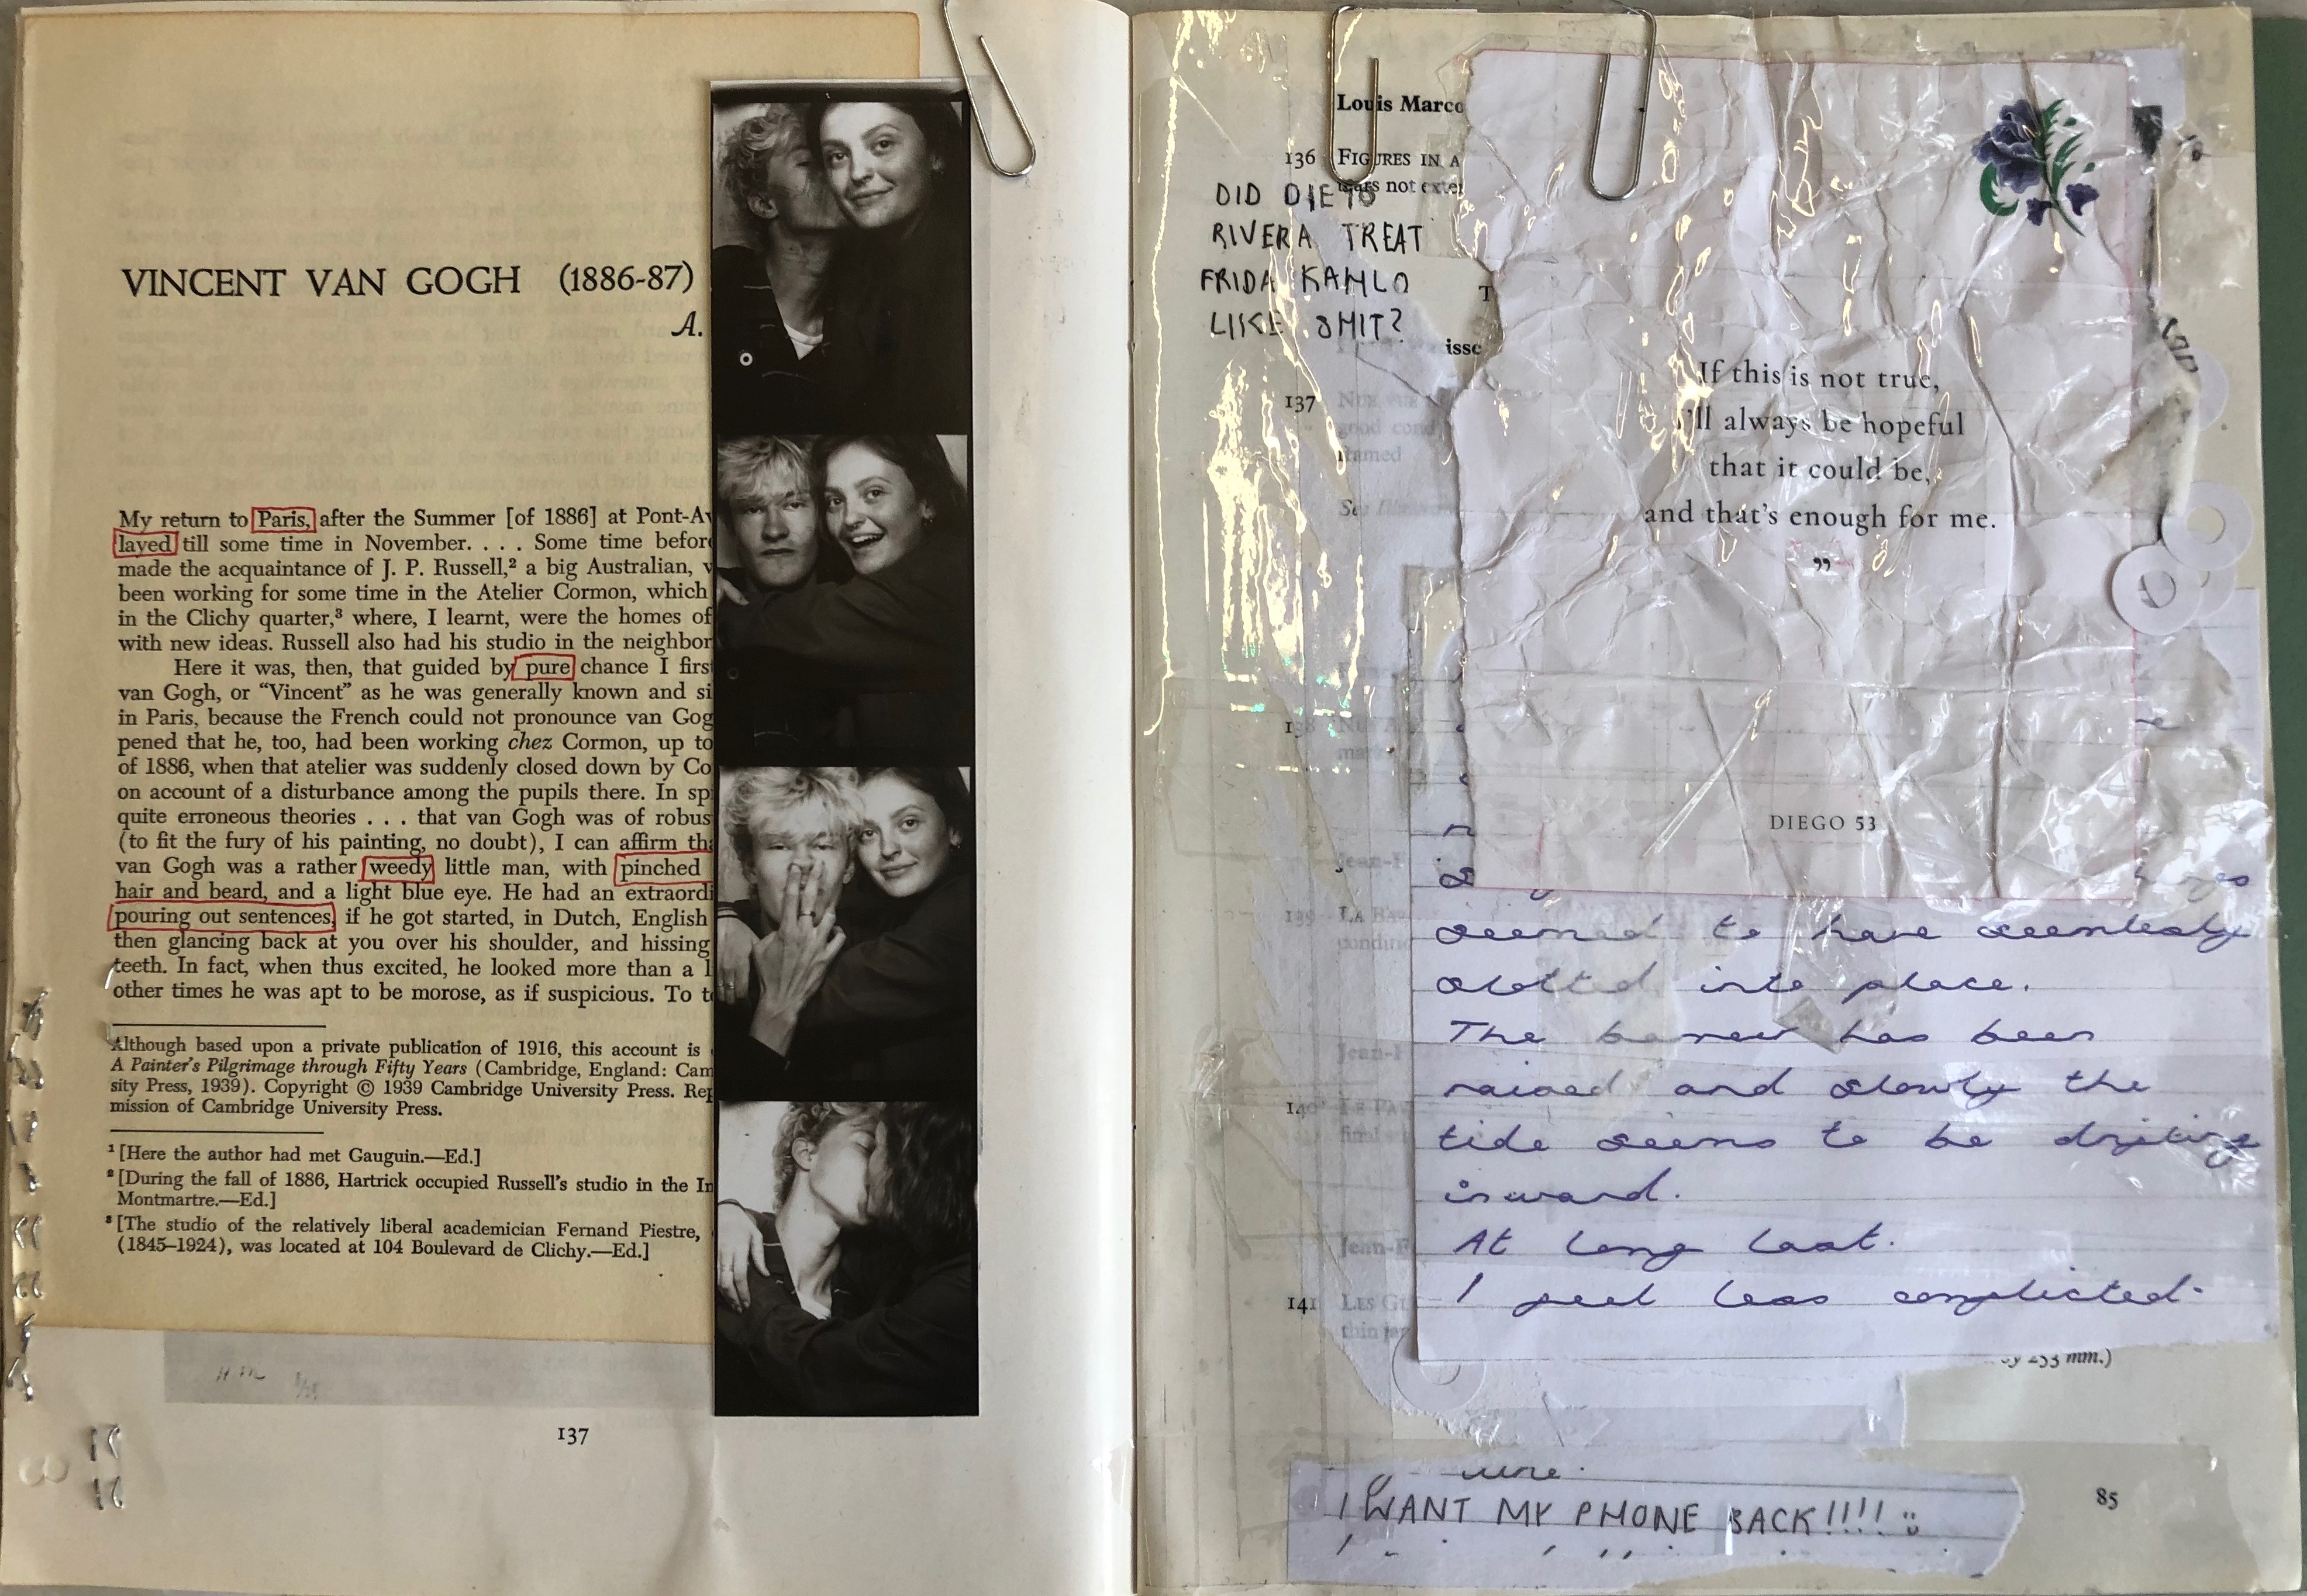 VINCENT VAN GOGH (1886-87)
A.
My return to Paris, after the Summer [of 1886] at Pont-Av
layed till some time in November. . . . Some time before
made the acquaintance of J. P. Russell,² a big Australian,
been working for some time in the Atelier Cormon, which
in the Clichy quarter,³ where, I learnt, were the homes of
with new ideas. Russell also had his studio in the neighbor
Here it was, then, that guided by pure chance I first
van Gogh, or “Vincent” as he was generally known and si
in Paris, because the French could not pronounce van Gog
pened that he, too, had been working chez Cormon, up to
of 1886, when that atelier was suddenly closed down by Co
on account of a disturbance among the pupils there. In sp
quite erroneous theories . . . that van Gogh was of robus
(to fit the fury of his painting, no doubt), I can affirm tha
van Gogh was a rather weedy little man, with pinched
hair and beard, and a light blue eye. He had an extraordi
pouring out sentences, if he got started, in Dutch, English
then glancing back at you over his shoulder, and hissing
teeth. In fact, when thus excited, he looked more than a l
other times he was apt to be morose, as if suspicious. To t
Although based upon a private publication of 1916, this account is
A Painter's Pilgrimage through Fifty Years (Cambridge, England: Cam
sity Press, 1939). Copyright © 1939 Cambridge University Press. Rep
mission of Cambridge University Press.
¹ [Here the author had met Gauguin.—Ed.]
² [During the fall of 1886, Hartrick occupied Russell's studio in the Im
Montmartre.—Ed.]
³ [The studio of the relatively liberal academician Fernand Piestre,
(1845–1924), was located at 104 Boulevard de Clichy.—Ed.]
137
Louis Marco
136 FIGURES IN A
tears not exte
DID DIEGO
RIVERA TREAT
FRIDA KAHLO
LIKE SHIT?
T
isse
137
good cond
framed
If this is not true,
I'll always be hopeful
that it could be,
and that's enough for me.
”
DIEGO 53
138
Jean-F
139 LA BA
condit
Jean-F
140 LE PA
Jean-F
141 LES G
thin ja
seemed to have seemlesly
slotted into place.
The barrier has been
raised and slowly the
tide seems to be drifting
inward.
At long last.
I feel less conflicted.
by 253 mm.)
I WANT MY PHONE BACK!!!!
85